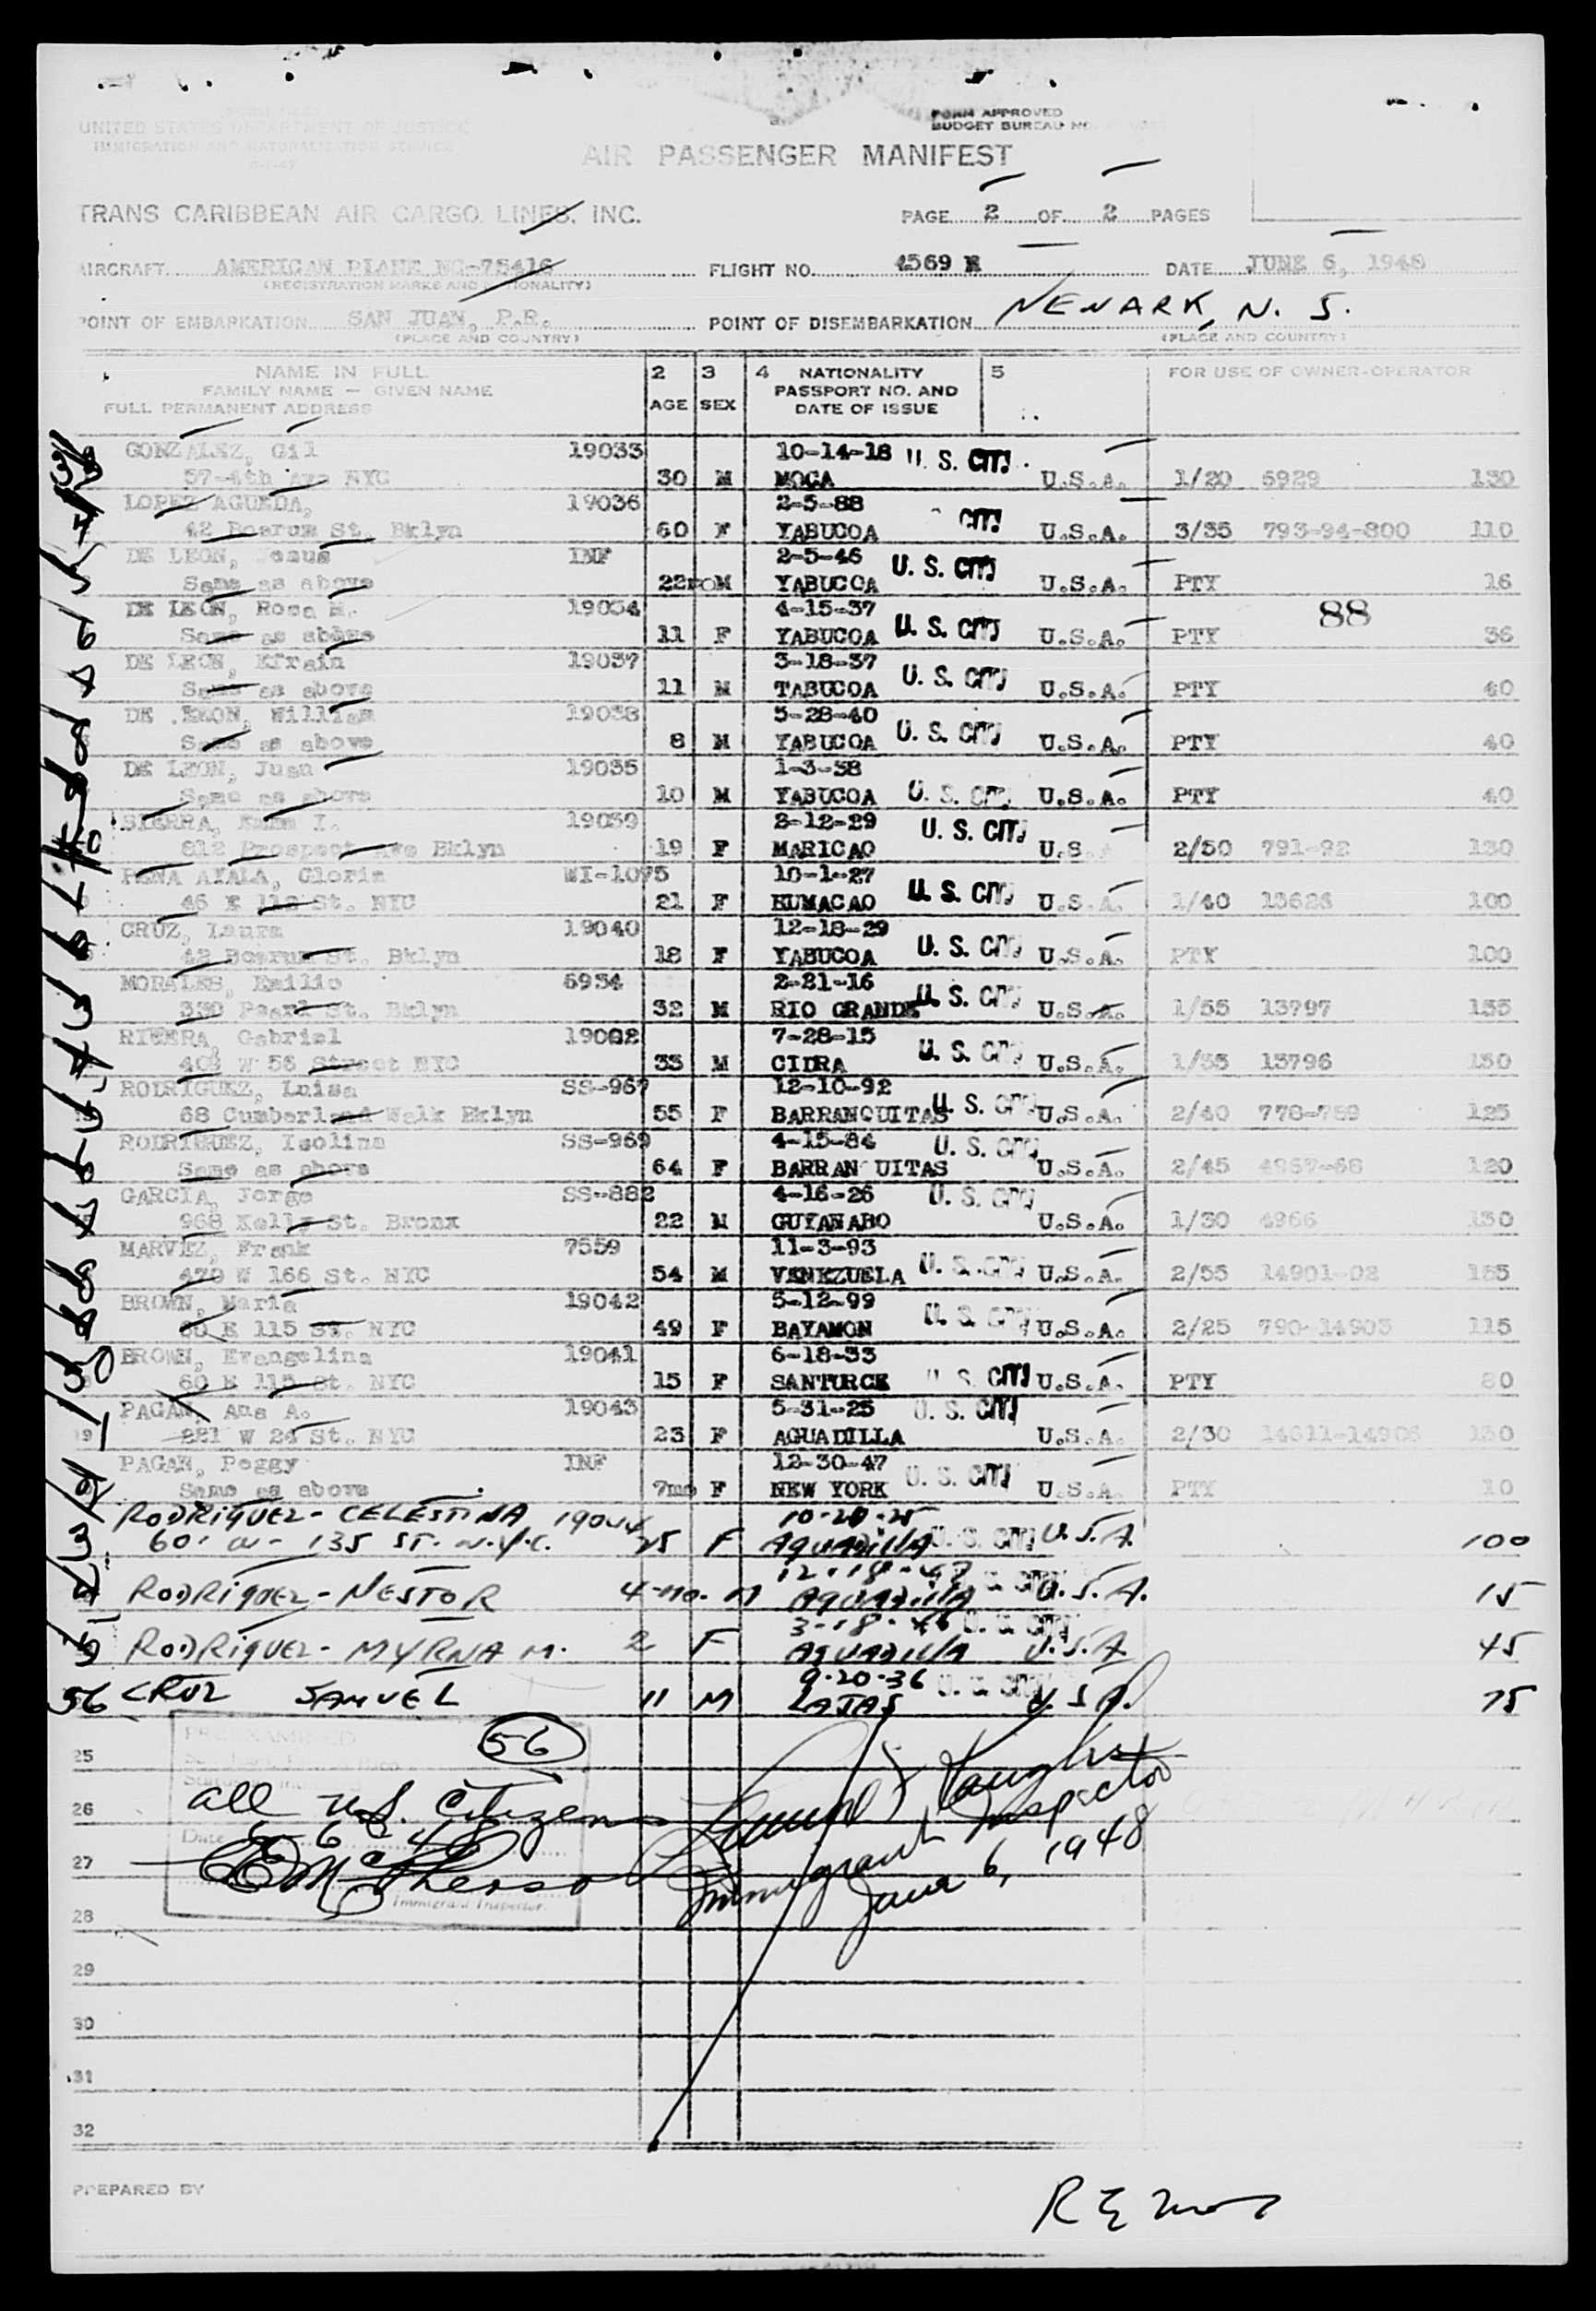 UNITED STATES DEPARTMENT OF JUSTICE
IMMIGRATION AND NATURALIZATION SERVICE
FORM APPROVED
BUDGET BUREAU NO.
AIR PASSENGER MANIFEST
TRANS CARIBBEAN AIR CARGO LINES, INC.
PAGE 2 OF 2 PAGES
AIRCRAFT AMERICAN PLANE NC-75416 FLIGHT NO. 4569 DATE JUNE 6, 1948
(REGISTRATION MARKS AND NATIONALITY)
POINT OF EMBARKATION SAN JUAN, P.R. POINT OF DISEMBARKATION NEWARK, N. J.
(PLACE AND COUNTRY) (PLACE AND COUNTRY)
NAME IN FULL 2 3 4 NATIONALITY 5 FOR USE OF OWNER-OPERATOR
FAMILY NAME — GIVEN NAME PASSPORT NO. AND
FULL PERMANENT ADDRESS AGE SEX DATE OF ISSUE
GONZALEZ, Gil 19033 10-14-18 U. S. CIT.
57-4th Ave NYC 30 M MOCA U.S.A. 1/20 5929 130
LOPEZ AGUEDA, 19036 2-5-88 CIT.
42 Boerum St. Bklyn 60 F YABUCOA U.S.A. 3/35 793-94-800 110
DE LEON, Jesus INF 2-5-46 U. S. CIT.
Same as above 22mo M YABUCOA U.S.A. PTY 16
DE LEON, Rosa M. 19034 4-15-37 88
Same as above 11 F YABUCOA U. S. CIT. U.S.A. PTY 36
DE LEON, Efrain 19037 3-18-37 U. S. CIT.
Same as above 11 M TABUCOA U.S.A. PTY 40
DE LEON, William 19038 5-28-40
Same as above 8 M YABUCOA U. S. CIT. U.S.A. PTY 40
DE LEON, Juan 19035 1-3-38
Same as above 10 M YABUCOA U. S. CIT. U.S.A. PTY 40
SIERRA, I. 19039 2-12-29 U. S. CIT.
812 Prospect Ave Bklyn 19 F MARICAO U.S. 2/50 791-92 130
PENA AYALA, Gloria WI-1075 10-1-27
46 E 112 St. NYC 21 F HUMACAO U. S. CIT. U.S.A. 1/40 13626 100
CRUZ, Laura 19040 12-18-29 U. S. CIT.
42 Boerum St. Bklyn 18 F YABUCOA U.S.A. PTY 100
MORALES, Emilio 6934 2-21-16 U. S. CIT.
330 Pearl St. Bklyn 32 M RIO GRANDE U.S.A. 1/55 13797 155
RIVERA, Gabriel 19002 7-28-15 U. S. CIT.
402 W 56 Street NYC 33 M CIDRA U.S.A. 1/35 13796 150
RODRIGUEZ, Luisa SS-967 12-10-92 U. S. CIT.
68 Cumberland Walk Bklyn 55 F BARRANQUITAS U.S.A. 2/40 778-789 125
RODRIGUEZ, Isolina SS-969 4-15-84 U. S. CIT.
Same as above 64 F BARRAN UITAS U.S.A. 2/45 4967-68 120
GARCIA, Jorge SS-882 4-16-26 U. S. CIT.
968 Kelly St. Bronx 22 M GUYANABO U.S.A. 1/30 4966 130
MARVEZ, Frank 7559 11-3-93 U. S. CIT.
470 W 166 St. NYC 54 M VENEZUELA U.S.A. 2/55 14901-02 155
BROWN, Maria 19042 5-12-99 U. S. CIT.
60 E 115 St. NYC 49 F BAYAMON U.S.A. 2/25 790-14903 115
BROWN, Evangelina 19041 6-18-33
60 E 115 St. NYC 15 F SANTURCE U. S. CIT. U.S.A. PTY 80
PAGAN, Ana A. 19043 5-31-25 U. S. CIT.
221 W 24 St. NYC 23 F AGUADILLA U.S.A. 2/30 14611-14906 130
PAGAN, Peggy INF 12-30-47 U. S. CIT.
Same as above 7mo F NEW YORK U.S.A. PTY 10
RODRIQUEZ - CELESTINA 19044 10-20-25
601 W - 135 ST. N.Y.C. 25 F AQUADILLA U. S. CIT. U.S.A. 100
12-18-47
RODRIQUEZ - NESTOR 4-mo. M AQUADILLA U.S.A. 15
3-18-46 U. S. CIT.
RODRIQUEZ - MYRNA M. 2 F AQUADILLA U.S.A 45
9-20-36 U. S. CIT.
56 CRUZ SAMUEL 11 M LAJAS U.S.A. 75
56
25
26 all U.S. Citizens
Immigrant Inspector
Date 6 6 48
27 June 6, 1948
Immigrant Inspector.
28
29
30
31
32
PREPARED BY